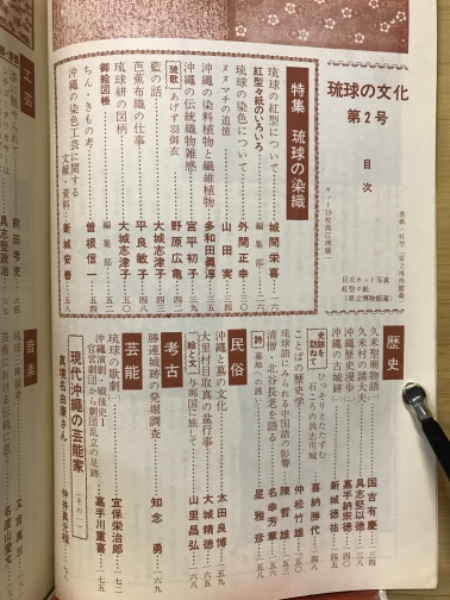 琉球の文化
第2号
目次
表紙・紅型(県立博物館蔵)
目次カット写真
紅型々紙
(県立博物館蔵)
特集 琉球の染織
琉球の紅型について 城間栄喜
紅型々紙のいろいろ 編集部
琉球の染色について 外間正幸 三〇
ヌヌマチの追憶 山田実 三四
沖縄の染料植物と繊維植物 多和田真淳 三五
沖縄の伝統織物雑感 宮平初子 三九
琉歌 あけず羽御衣 野原広亀
藍の話 大城志津子 四四
芭蕉布織の仕事 平良敏子 四八
琉球絣の図柄 大城志津子
御絵図帳 編集部
ちん・きもの考 曽根信一 五四
沖縄の染色工芸に関する
文献・資料 新城安善
歴史
久米聖廟物語 国吉有慶 三四
久米村の諸大夫 具志堅以徳
沖縄歴史漫歩 嘉手納宗徳 四〇
沖縄の古城跡 新城徳祐
史跡を訪ねて ひっそりとたたずむ
石ごろの具志川城 喜納勝代 四八
ことばの歴史学 仲松竹雄 五〇
琉球語にみられる中国語の影響 陳哲雄
清僧・北谷長老を語る 名幸芳章 五六
詩 墓地への誘い 星雅彦 五八
民俗
沖縄と墓の文化 太田良博 五九
大里村目取真の盆行事 大城精徳 六五
絵と文 与那国に旅して 山里昌弘 六七
考古
勝連城跡の発堀調査 知念勇 六九
芸能
琉球の歌劇 宜保栄治郎 七二
沖縄演劇・戦後史1
官営劇団から劇団乱立の足跡 嘉手川重喜 七五
現代沖縄の芸能家(その一)
真境名由康さん 仲井真元楷 七八
工芸
前田孝允 六四
具志堅政治 六七
音楽
琉球三味線考 又吉真三
芸術における伝統に思う 名渡山愛文